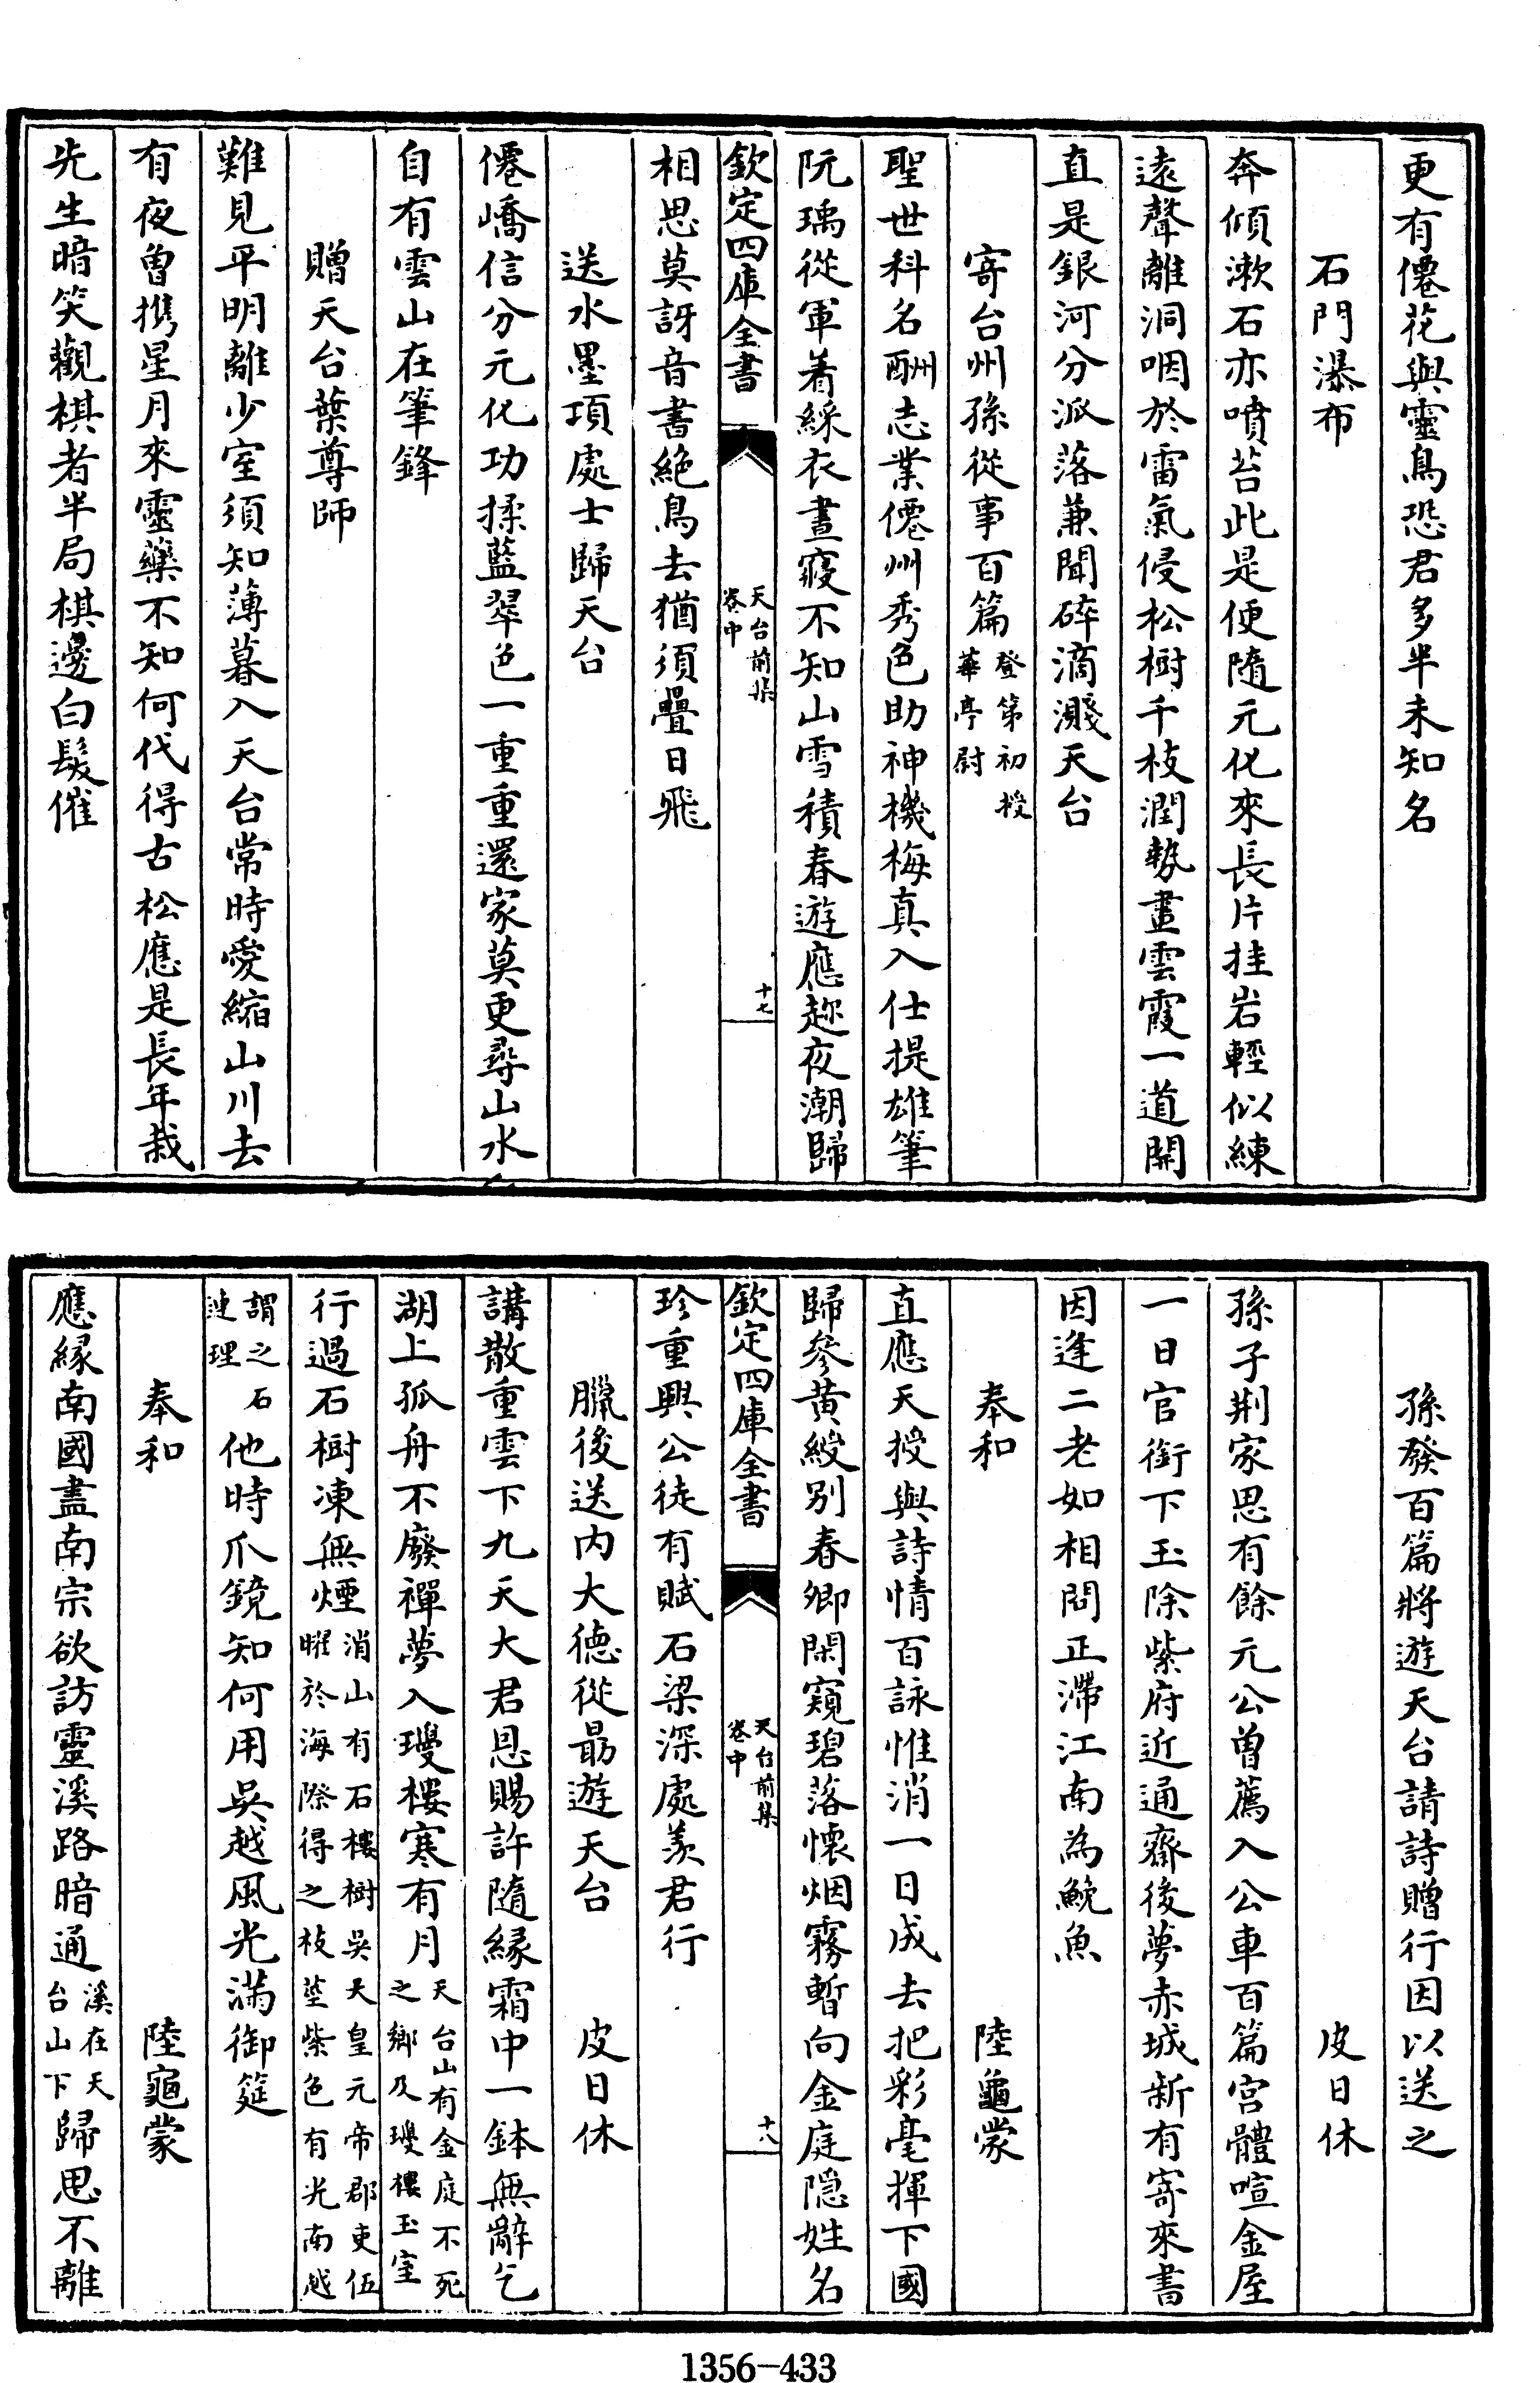 更有僊花與靈鳥恐君多半未知名
石門瀑布
奔傾漱石亦噴苔此是便隨元化來長片挂岩輕似練
遠聲離洞咽於雷氣侵松樹千枝潤勢畫雲霞一道開
直是銀河分派落兼聞碎滴濺天台
寄台州孫從事百篇登第初授華亭尉
聖世科名酬志業僊州秀色助神機梅真入仕提雄筆
阮瑀從軍着綵衣晝寢不知山雪積春遊應趂夜潮歸
欽定四庫全書 天台前集卷中 十七
相思莫訝音書絶鳥去猶須疊日飛
送水墨項處士歸天台
僊嶠信分元化功揉藍翠色一重重還家莫更尋山水
自有雲山在筆鋒
贈天台葉尊師
難見平明離少室須知薄暮入天台常時愛縮山川去
有夜曽携星月來靈藥不知何代得古松應是長年栽
先生暗笑觀棋者半局棋邊白髮催
孫發百篇將遊天台請詩贈行因以送之
皮日休
孫子荆家思有餘元公曽薦入公車百篇宮體喧金屋
一日官銜下玉除紫府近通齋後夢赤城新有寄來書
因逢二老如相問正滯江南為鮸魚
奉和 陸龜蒙
直應天授與詩情百詠惟消一日成去把彩毫揮下國
歸參黄綬别春卿閑窺碧落懷烟霧暫向金庭隠姓名
欽定四庫全書 天台前集卷中 十八
珍重興公徒有賦石梁深處羨君行
臘後送内大德從朂遊天台 皮日休
講散重雲下九天大君恩賜許隨緣霜中一鉢無辭乞
湖上孤舟不廢禪夢入瓊樓寒有月天台山有金庭不死之鄉及瓊樓玉室
行過石樹凍無煙消山有石樓樹吳大皇元帝郡吏伍曜於海際得之枝莖紫色有光南越
謂之石連理他時爪鏡知何用吳越風光滿御筵
奉和 陸龜蒙
應緣南國盡南宗欲訪靈溪路暗通溪在天台山下歸思不離
1356-433